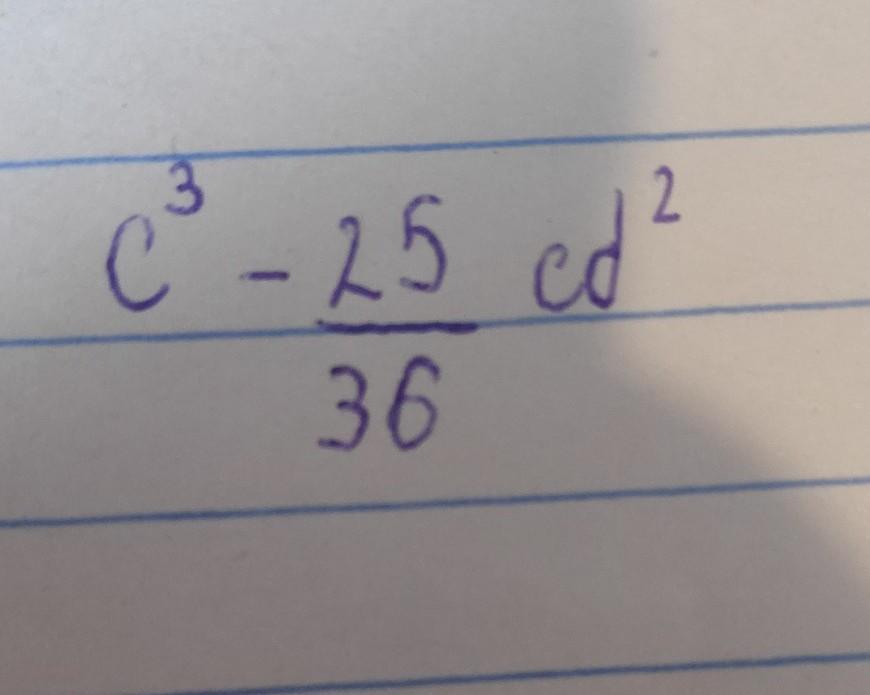 C³ - 25/36 cd²